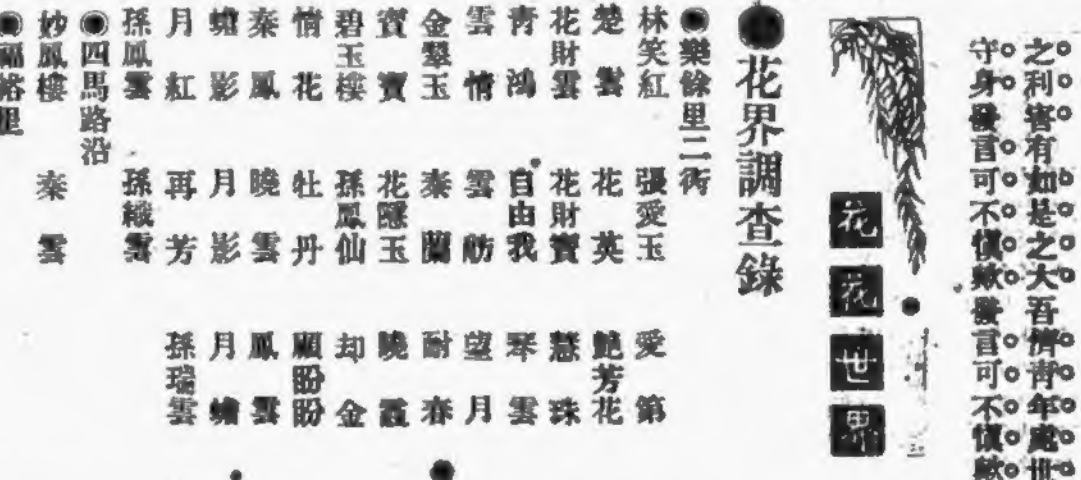 之利害有如是之大吾儕青年處世
守身發言可不慎歟發言可不慎歟
花花世界
●花界調查錄
◉樂餘里二衖
林笑紅　張愛玉　愛第
楚雲　花英　艷芳花
花財雲　花財寶　慧珠
青鴻　自由我　琴雲
雲情　雲舫　望月
金翠玉　秦蘭　耐春
寶寶　花隱玉　曉霞
碧玉樓　孫鳳仙　却金
情花　牡丹　顧盼盼
秦鳳　曉雲　鳳雲
蟾影　月影　月蟾
月紅　再芳　孫瑞雲
孫鳳雲　孫織雲
◉四馬路沿
妙鳳樓　秦雲
◉福裕里